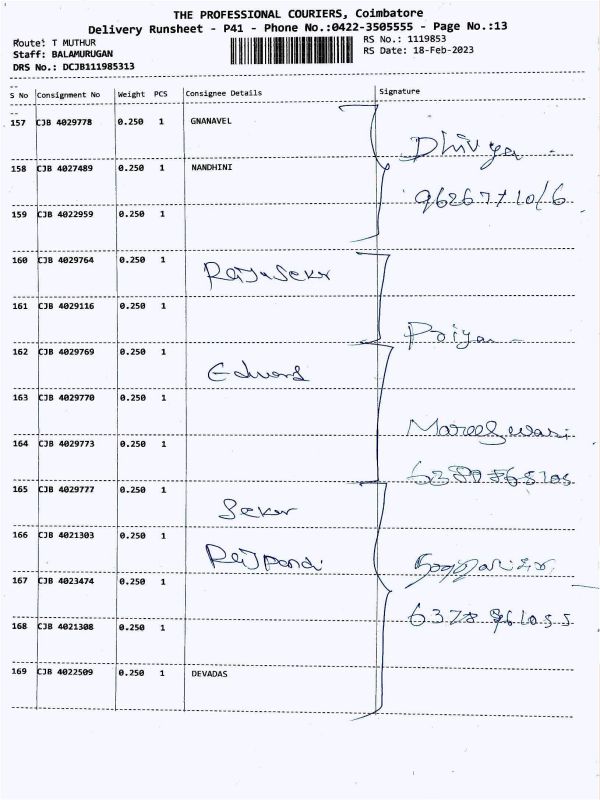 THE PROFESSIONAL COURIERS, Coimbatore
Delivery Runsheet - P41 - Phone No.:0422-3505555 - Page No.:13
Route: T MUTHUR
RS No.: 1119853
Staff: BALAMURUGAN
RS Date: 18-Feb-2023
DRS No.: DCJB111985313
S No Consignment No Weight PCS Consignee Details Signature
157 CJB 4029778 0.250 1 GNANAVEL
Dhivya
158 CJB 4027489 0.250 1 NANDHINI
159 CJB 4022959 0.250 1
160 CJB 4029764 0.250 1 RajaSekr
161 CJB 4029116 0.250 1
Poiyan
162 CJB 4029769 0.250 1 Edward
163 CJB 4029770 0.250 1
Mareeswari
164 CJB 4029773 0.250 1
165 CJB 4029777 0.250 1 Seker
166 CJB 4021303 0.250 1 Rajpandi
167 CJB 4023474 0.250 1
168 CJB 4021308 0.250 1
169 CJB 4022509 0.250 1 DEVADAS